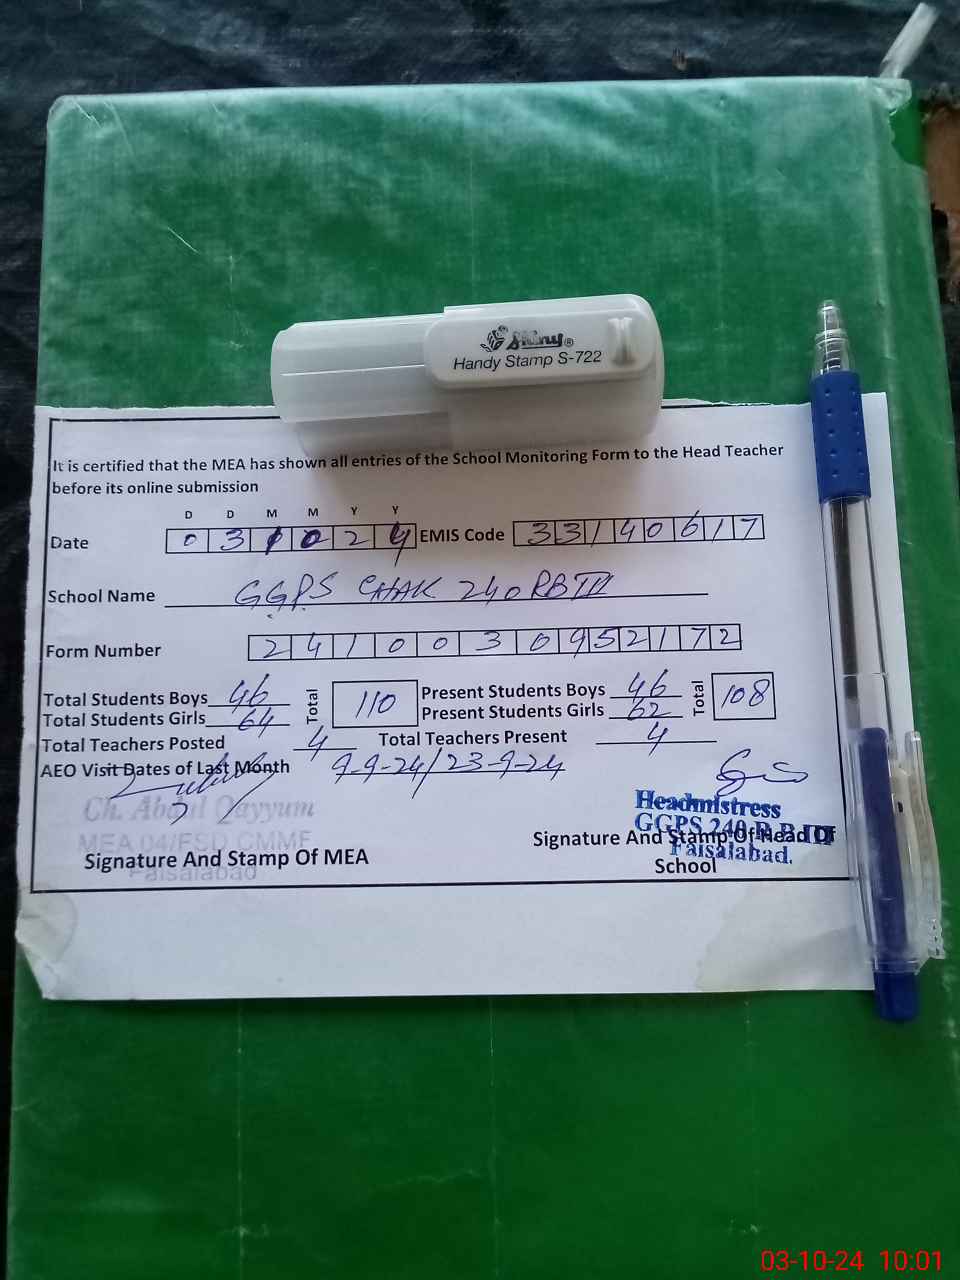 Shiny®
Handy Stamp S-722
It is certified that the MEA has shown all entries of the School Monitoring Form to the Head Teacher
before its online submission
D D M M Y Y
Date 0 3 1 0 2 4 EMIS Code 3 3 1 4 0 6 1 7
School Name GGPS CHAK 240 RB III
Form Number 2 4 1 0 0 3 0 9 5 2 1 7 2
Total Students Boys 46 Total 110 Present Students Boys 46 Total 108
Total Students Girls 64 Present Students Girls 62
Total Teachers Posted 4 Total Teachers Present 4
AEO Visit Dates of Last Month 9-9-24/23-9-24
Ch. Abdul Qayyum
MEA 04/FSD CMMF
Faisalabad
Signature And Stamp Of MEA
Headmistress
GGPS 240 R.B III
Faisalabad.
Signature And Stamp Of Head Of
School
03-10-24 10:01